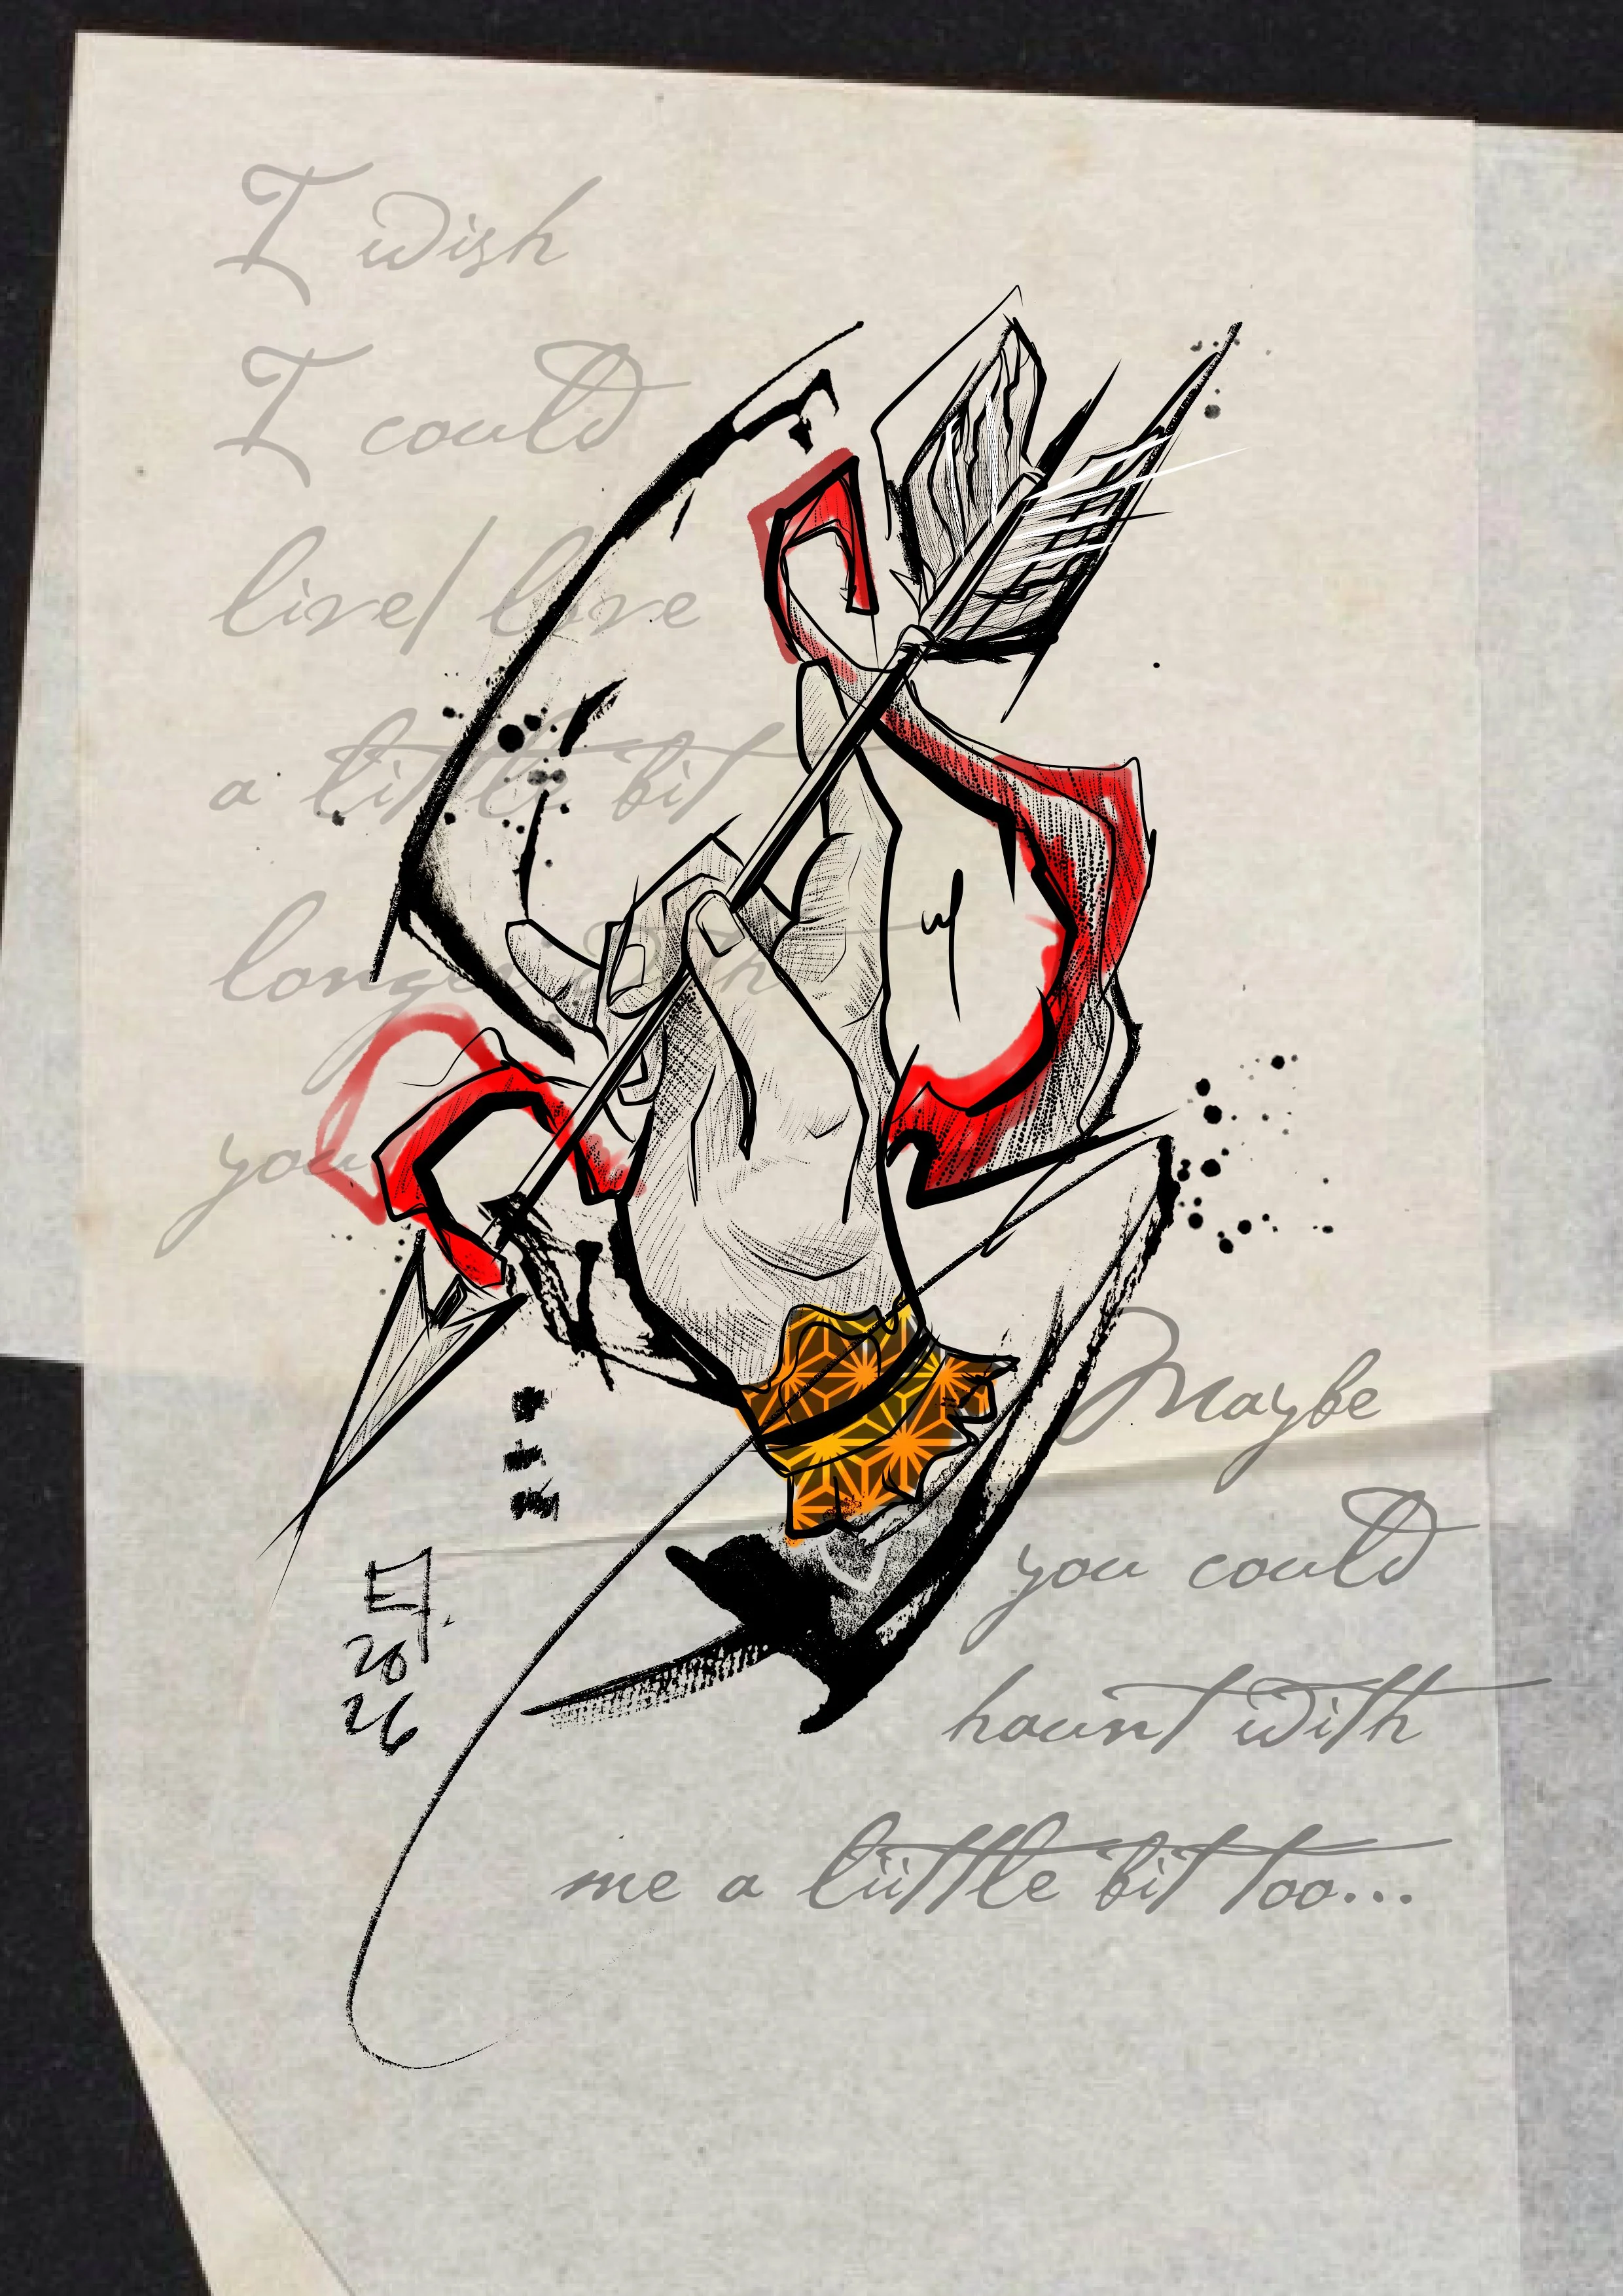 I wish
I could
live/ love
a little bit
longer with
you
Maybe
you could
haunt with
me a liittle bit too...
20
26